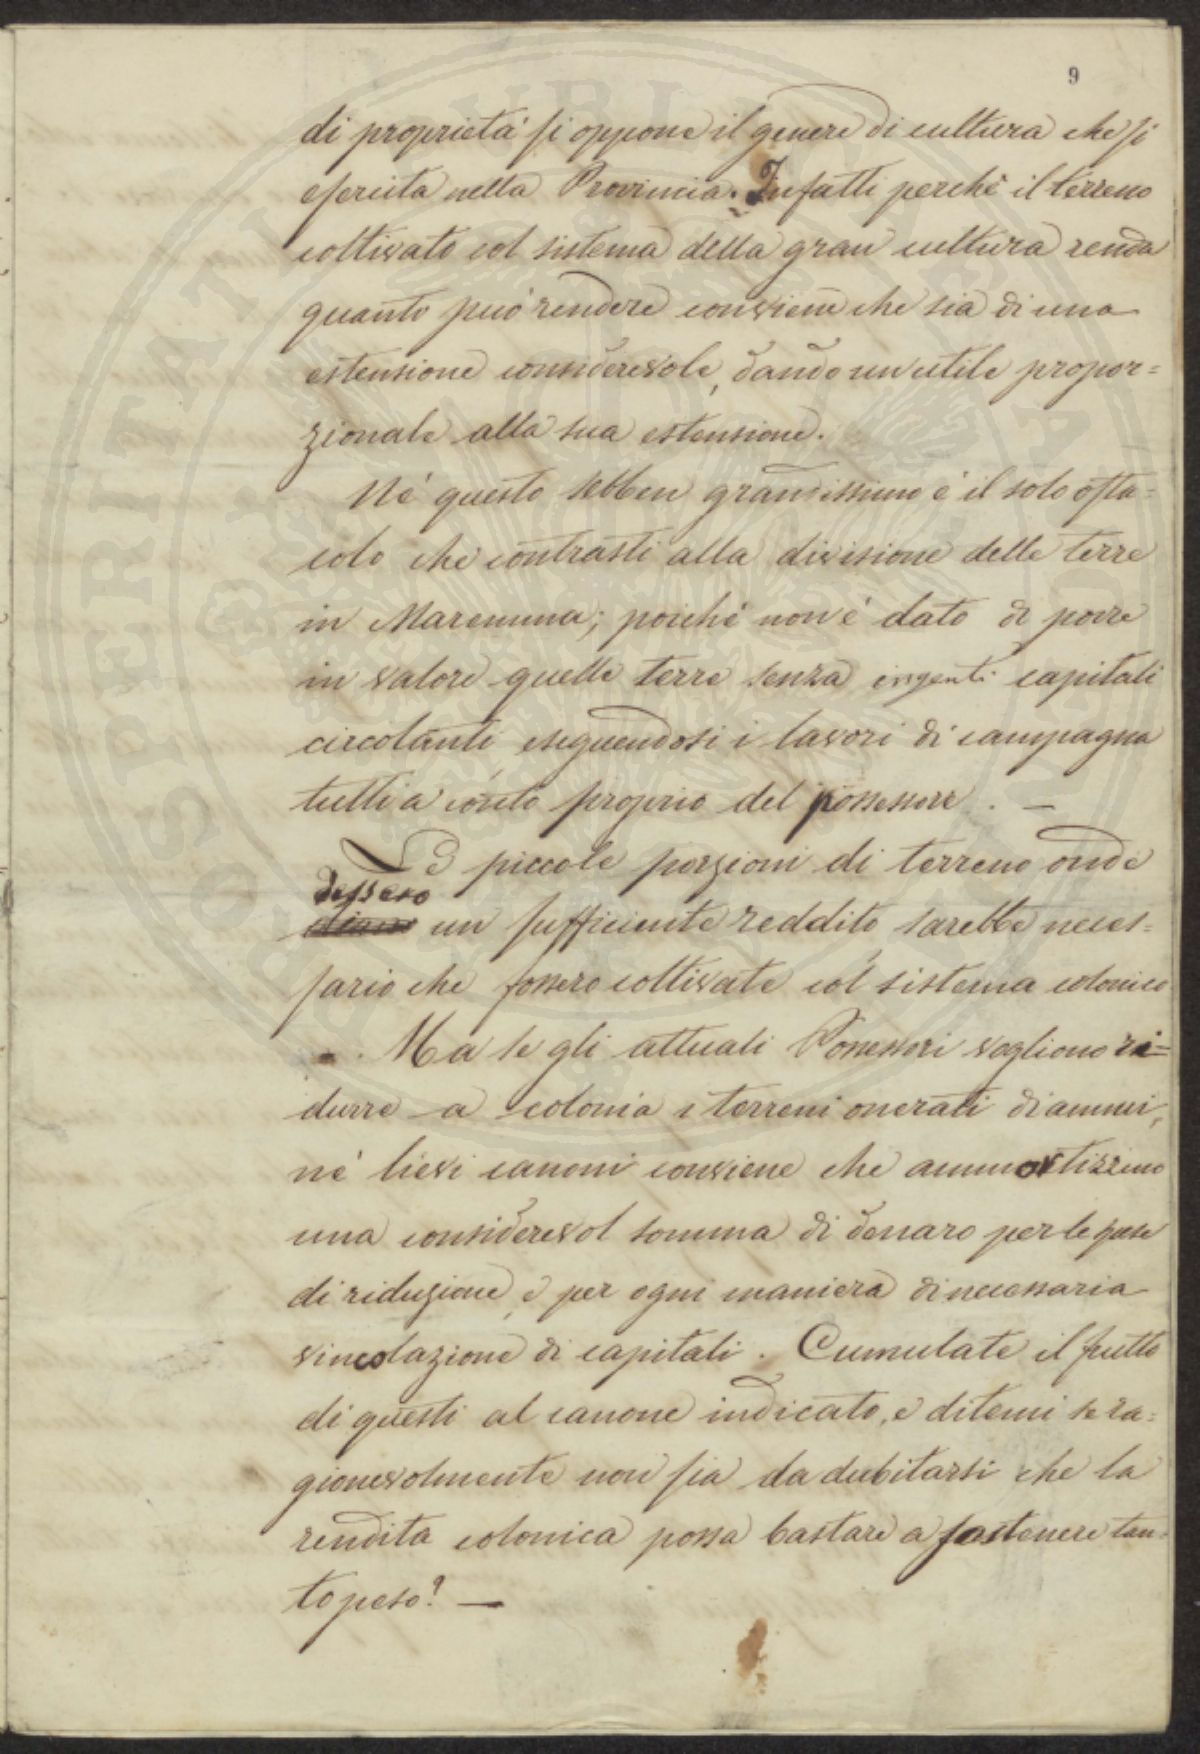 9
di proprietà si oppone il genere di cultura che si
esercita nella Provincia. Infatti perchè il terreno
coltivato col sistema della gran cultura renda
quanto può rendere conviene che sia di una
estensione considerevole, dando un utile propor=
zionale alla sua estensione.
Nè questo sebben grandissimo è il solo osta=
colo che contrasti alla divisione delle terre
in Maremma; poichè non è dato di porre
in valore quelle terre senza ingenti capitali
circolanti, eseguendosi i lavori di campagna
tutti a conto proprio del possessore. —
Le piccole porzioni di terreno onde
dessero
un sufficiente reddito sarebbe neces=
sario che fossero coltivate col sistema colonico
. Ma se gli attuali Possessori vogliono ri=
durre a colonia i terreni onerati di annui,
nè lievi canoni conviene che ammortizzino
una considerevol somma di denaro per le spese
di riduzione, e per ogni maniera di necessaria
vincolazione di capitali. Cumulate il frutto
di questi al canone indicato, e ditemi se ra=
gionevolmente non sia da dubitarsi che la
rendita colonica possa bastare a sostenere tan=
to peso? —
PROSPERITATI PUBLICAE AUGENDAE